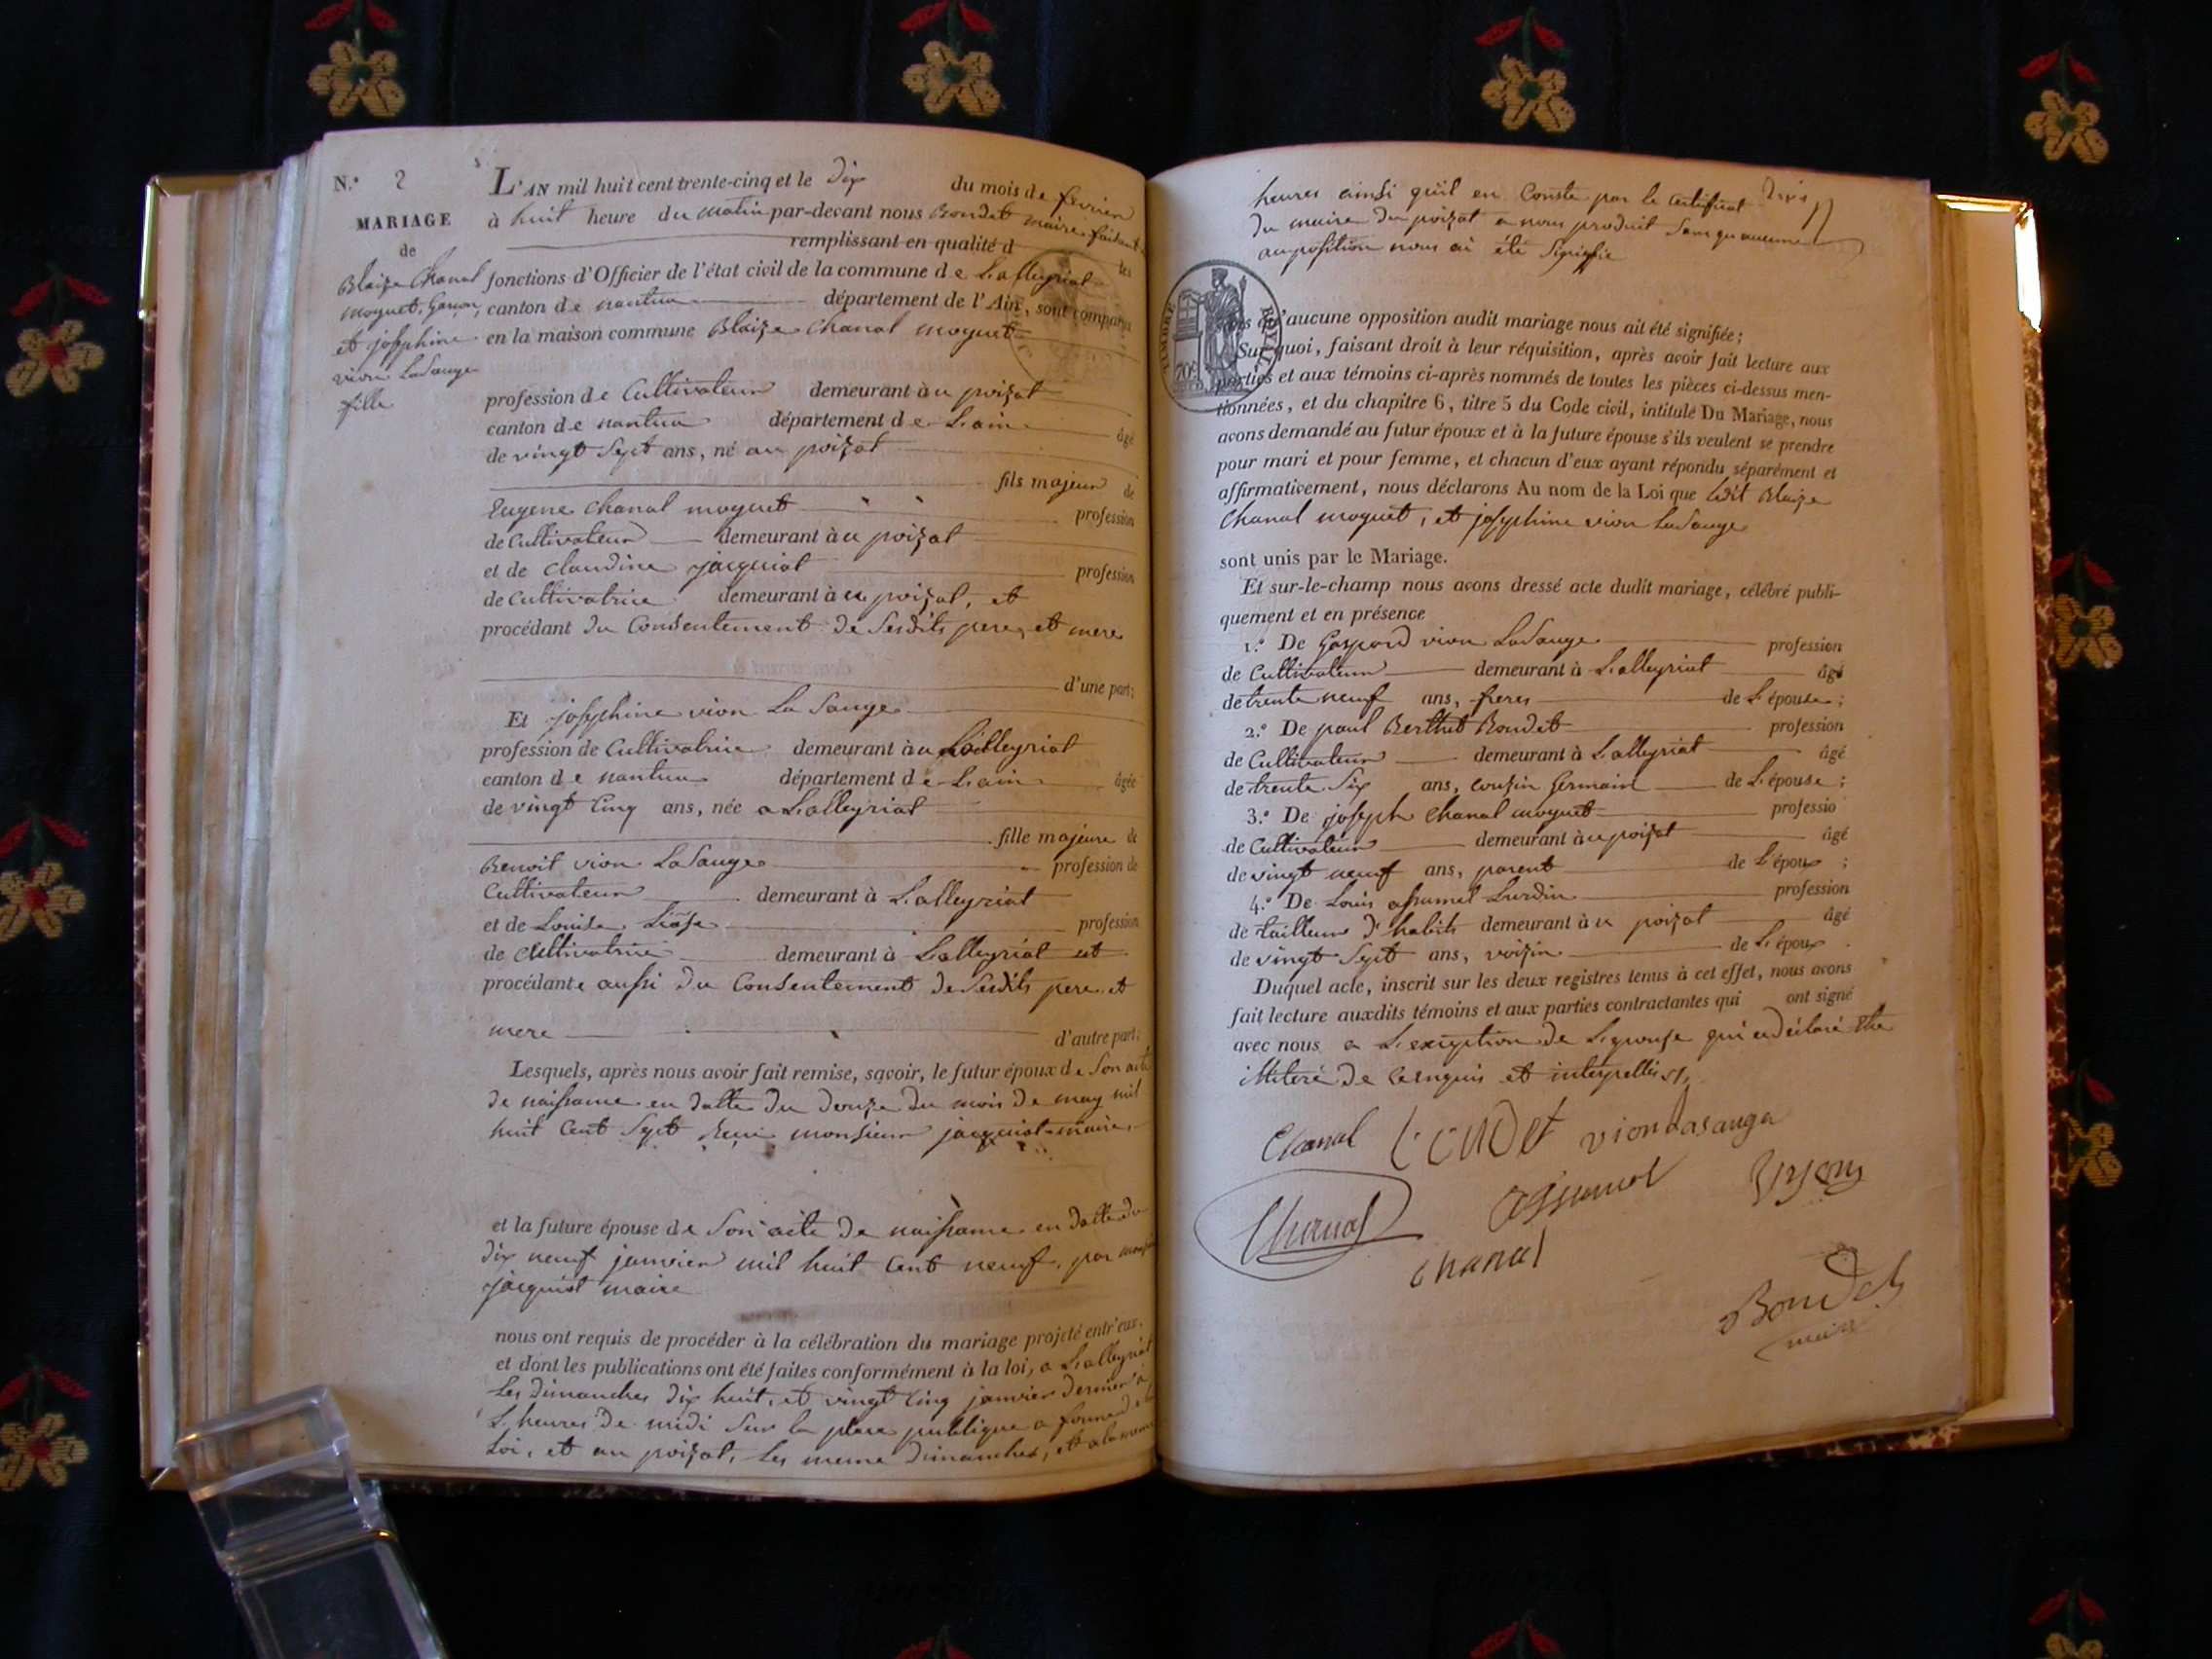 N.º 2
MARIAGE
de
Blaize Chanal
moguet, Garçon,
et josephine
vion Lasauge
fille
L'AN mil huit cent trente-cinq et le dix du mois de fevrier
à huit heure du matin par-devant nous Bondet maire faisant
remplissant en qualité d les
fonctions d'Officier de l'état civil de la commune de Lalleyriat
canton de nantua département de l'Ain, sont comparus
en la maison commune Blaize Chanal moguet
profession de Cultivateur demeurant à u poizat
canton de nantua département de L'ain âgé
de vingt Sept ans, né au poizat
fils majeur de
Eugene Chanal moguet profession
de Cultivateur demeurant à u poizat
et de Claudine jacquiot profession
de Cultivatrice demeurant à u poizat, et
procédant du Consentement de Sesdits pere et mere
d'une part;
Et josephine vion La Sauge
profession de Cultivatrice demeurant à Lalleyriat
canton de nantua département de L'ain âgée
de vingt Cinq ans, née a Lalleyriat
fille majeure de
Benoit vion LaSauge profession de
Cultivateur demeurant à Lalleyriat
et de Louise profession
de Cultivatrice demeurant à Lalleyriat et
procédante aussi du Consentement de Sesdits pere et
mere d'autre part;
Lesquels, après nous avoir fait remise, savoir, le futur époux de Son acte
de naissance en datte du douze du mois de may mil
huit Cent Sept Reçu monsieur jacquiot maire,
et la future épouse de Son acte de naissance en datte du
dix neuf janvier mil huit Cent neuf, par
jacquiot maire
nous ont requis de procéder à la célébration du mariage projeté entr'eux,
et dont les publications ont été faites conformément à la loi, a Lalleyriat
Les dimanches dix huit, et vingt Cinq janvier dernier à
L'heures de midi Sur la place publique a forme de
Loi, et au poizat, Les meme dimanches, et a la meme
heures ainsi qu'il en Conste par le Certificat
du maire du poizat a nous produit Sans qu'aucune
auposition nous ai été Signifié
TIMBRE ROYAL
70 c.
sans qu'aucune opposition audit mariage nous ait été signifiée;
Sur quoi, faisant droit à leur réquisition, après avoir fait lecture aux
parties et aux témoins ci-après nommés de toutes les pièces ci-dessus men-
tionnées, et du chapitre 6, titre 5 du Code civil, intitulé Du Mariage, nous
avons demandé au futur époux et à la future épouse s'ils veulent se prendre
pour mari et pour femme, et chacun d'eux ayant répondu séparément et
affirmativement, nous déclarons Au nom de la Loi que Ledit Blaize
Chanal moguet, et josephine vion LaSauge
sont unis par le Mariage.
Et sur-le-champ nous avons dressé acte dudit mariage, célébré publi-
quement et en présence
1.º De Gaspard vion LaSauge profession
de Cultivateur demeurant à Lalleyriat âgé
de trente neuf ans, freres de L'épouse;
2.º De paul Berthet Bondet profession
de Cultivateur demeurant à Lalleyriat âgé
de trente Six ans, cousin Germain de L'épouse;
3.º De joseph Chanal moguet professio
de Cultivateur demeurant à u poizat âgé
de vingt neuf ans, parent de L'époux;
4.º De Louis assumel Lurdin profession
de tailleur d'habits demeurant à u poizat âgé
de vingt Sept ans, voisin de L'époux
Duquel acte, inscrit sur les deux registres tenus à cet effet, nous avons
fait lecture auxdits témoins et aux parties contractantes qui ont signé
avec nous a L'exception de L'épouse qui a déclaré Etre
illiteré de Cenquis et interpellés
Chanal vion Lasauge
Chanal assumel
chanal
Bondet
maire